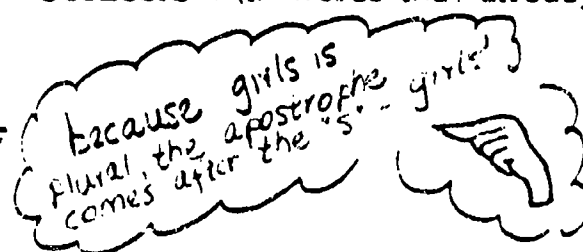 because girls is
plural, the apostrophe
comes after the "s" - girls'